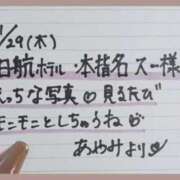 /29(木)
日航ホテル・本指名 スー様
えっちな写真♡見るたび
モニモニとしちゃうね
あやみより